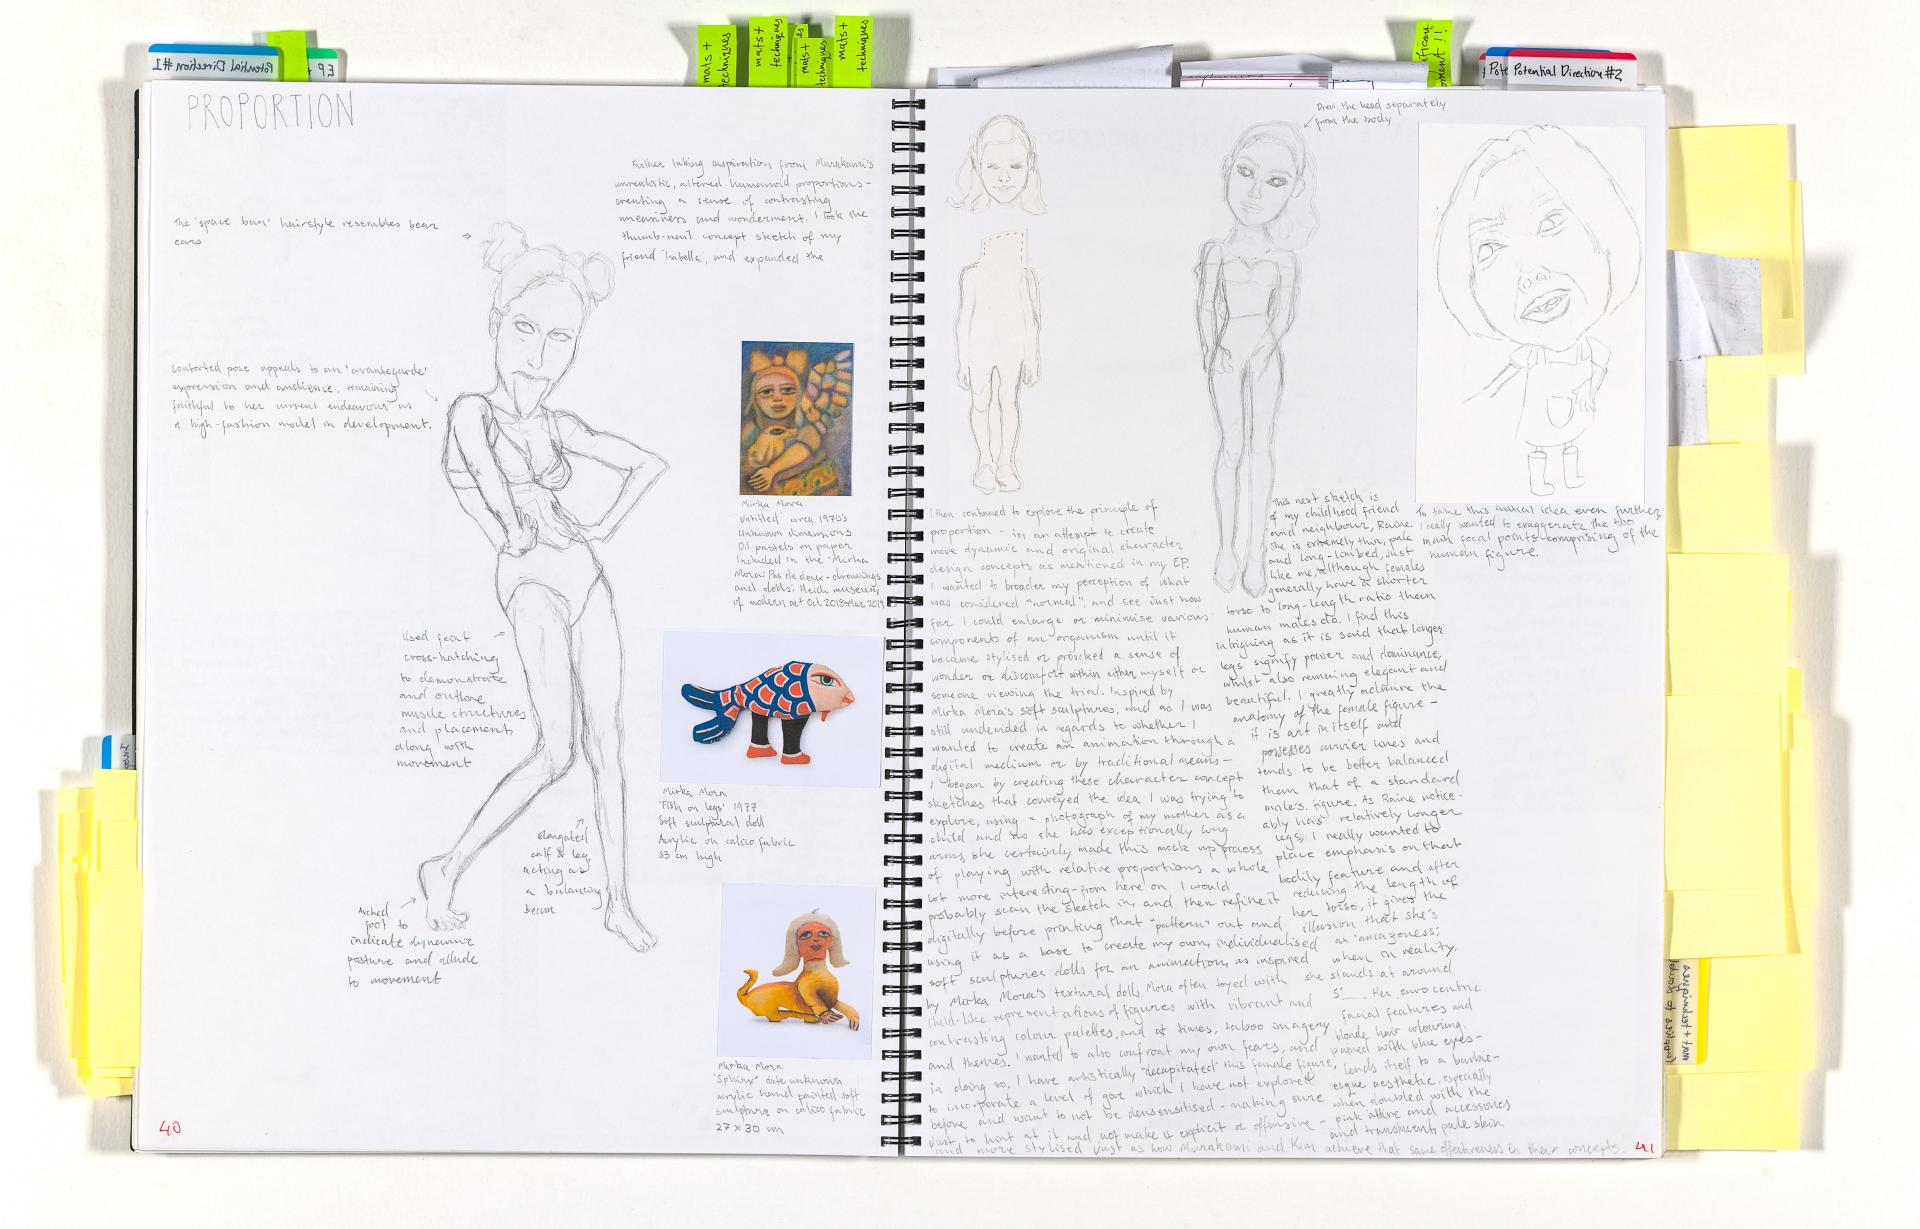 Potential Direction #1
EP +
mats +
techniques
mats +
techniques
mats +
techniques
mats +
techniques
Potential Direction #2
PROPORTION
The 'space bun' hairstyle resembles bear
ears
Further taking inspiration from Murakami's
unrealistic, altered humanoid proportions -
creating a sense of contrasting
uneasiness and wonderment. I took the
thumb-nail concept sketch of my
friend 'Isabella', and expanded the
Contorted pose appeals to an 'avantegarde'
expression and audience, remaining
faithful to her current endeavour as
a high-fashion model in development.
Mirka Mora
'Untitled' circa 1970's
Unknown dimensions
Oil pastels on paper
Included in the Mirka
Mora: Pas de deux - drawings
and dolls: Heide museum
of modern art Oct. 2018-Mar. 2019
Used feint
cross-hatching
to demonstrate
and outline
muscle structures
and placement
along with
movement
Mirka Mora
'Fish on legs' 1977
Soft sculptural doll
Acrylic on calico fabric
33 cm high
Elongated
calf & leg
acting as
a balancing
beam
Arched
foot to
indicate dynamic
posture and allude
to movement
Mirka Mora
'Sphinx' date unknown
acrylic hand painted soft
sculpture on calico fabric
27 x 30 cm
40
Draw the head separately
from the body
I then continued to explore the principle of
proportion - in an attempt to create
more dynamic and original character
design concepts as mentioned in my EP.
I wanted to broaden my perception of what
was considered "normal", and see just how
far I could enlarge or minimise various
components of an organism until it
became stylised or provoked a sense of
wonder or discomfort within either myself or
someone viewing the trial. Inspired by
Mirka Mora's soft sculptures, and as I was
still undecided in regards to whether I
wanted to create an animation through a
digital medium or by traditional means -
I began by creating these character concept
sketches that conveyed the idea I was trying to
explore, using a photograph of my mother as a
child and as she has exceptionally long
arms, she certainly made this mock up process
of playing with relative proportions a whole
lot more interesting - from here on I would
probably scan the sketch in, and then refine it
digitally before printing that "pattern" out and
using it as a base to create my own, individualised
soft sculptures dolls for an animation, as inspired
by Mirka Mora's textural dolls. Mora often toyed with
child-like representations of figures with vibrant and
contrasting colour palettes, and at times, taboo imagery
and themes. I wanted to also confront my own fears, and
in doing so, I have artistically "decapitated" this female figure,
to incorporate a level of gore which I have not explored
before and want to not be densensitised - making sure
just, to hint at it and not make it explicit or offensive -
and more stylised just as how Murakami and Kim achieve that same effectiveness in their concepts.
This next sketch is
of my childhood friend
and neighbour, Raine.
She is extremely thin, pale
and long-limbed, just
like me, although females
generally have a shorter
torso to long-length ratio than
human males do. I find this
intriguing as it is said that longer
legs signify power and dominance,
whilst also remaining elegant and
beautiful. I greatly admire the
anatomy of the female figure -
it is art in itself and
possesses curvier lines and
tends to be better balanced
than that of a standard
male's figure. As Raine notice-
ably has relatively longer
legs, I really wanted to
place emphasis on that
bodily feature and after
reducing the length of
her torso, it gives the
illusion that she's
an 'amazoness',
when in reality,
she stands at around
5'__. Her eurocentric
facial features and
blonde hair colouring,
paired with blue eyes -
lends itself to a barbie-
esque aesthetic, especially
when doubled with the
pink attire and accessories
and translucent, pale skin.
To take this initial idea even further,
I really wanted to exaggerate the two
main focal points comprising of the
human figure.
41